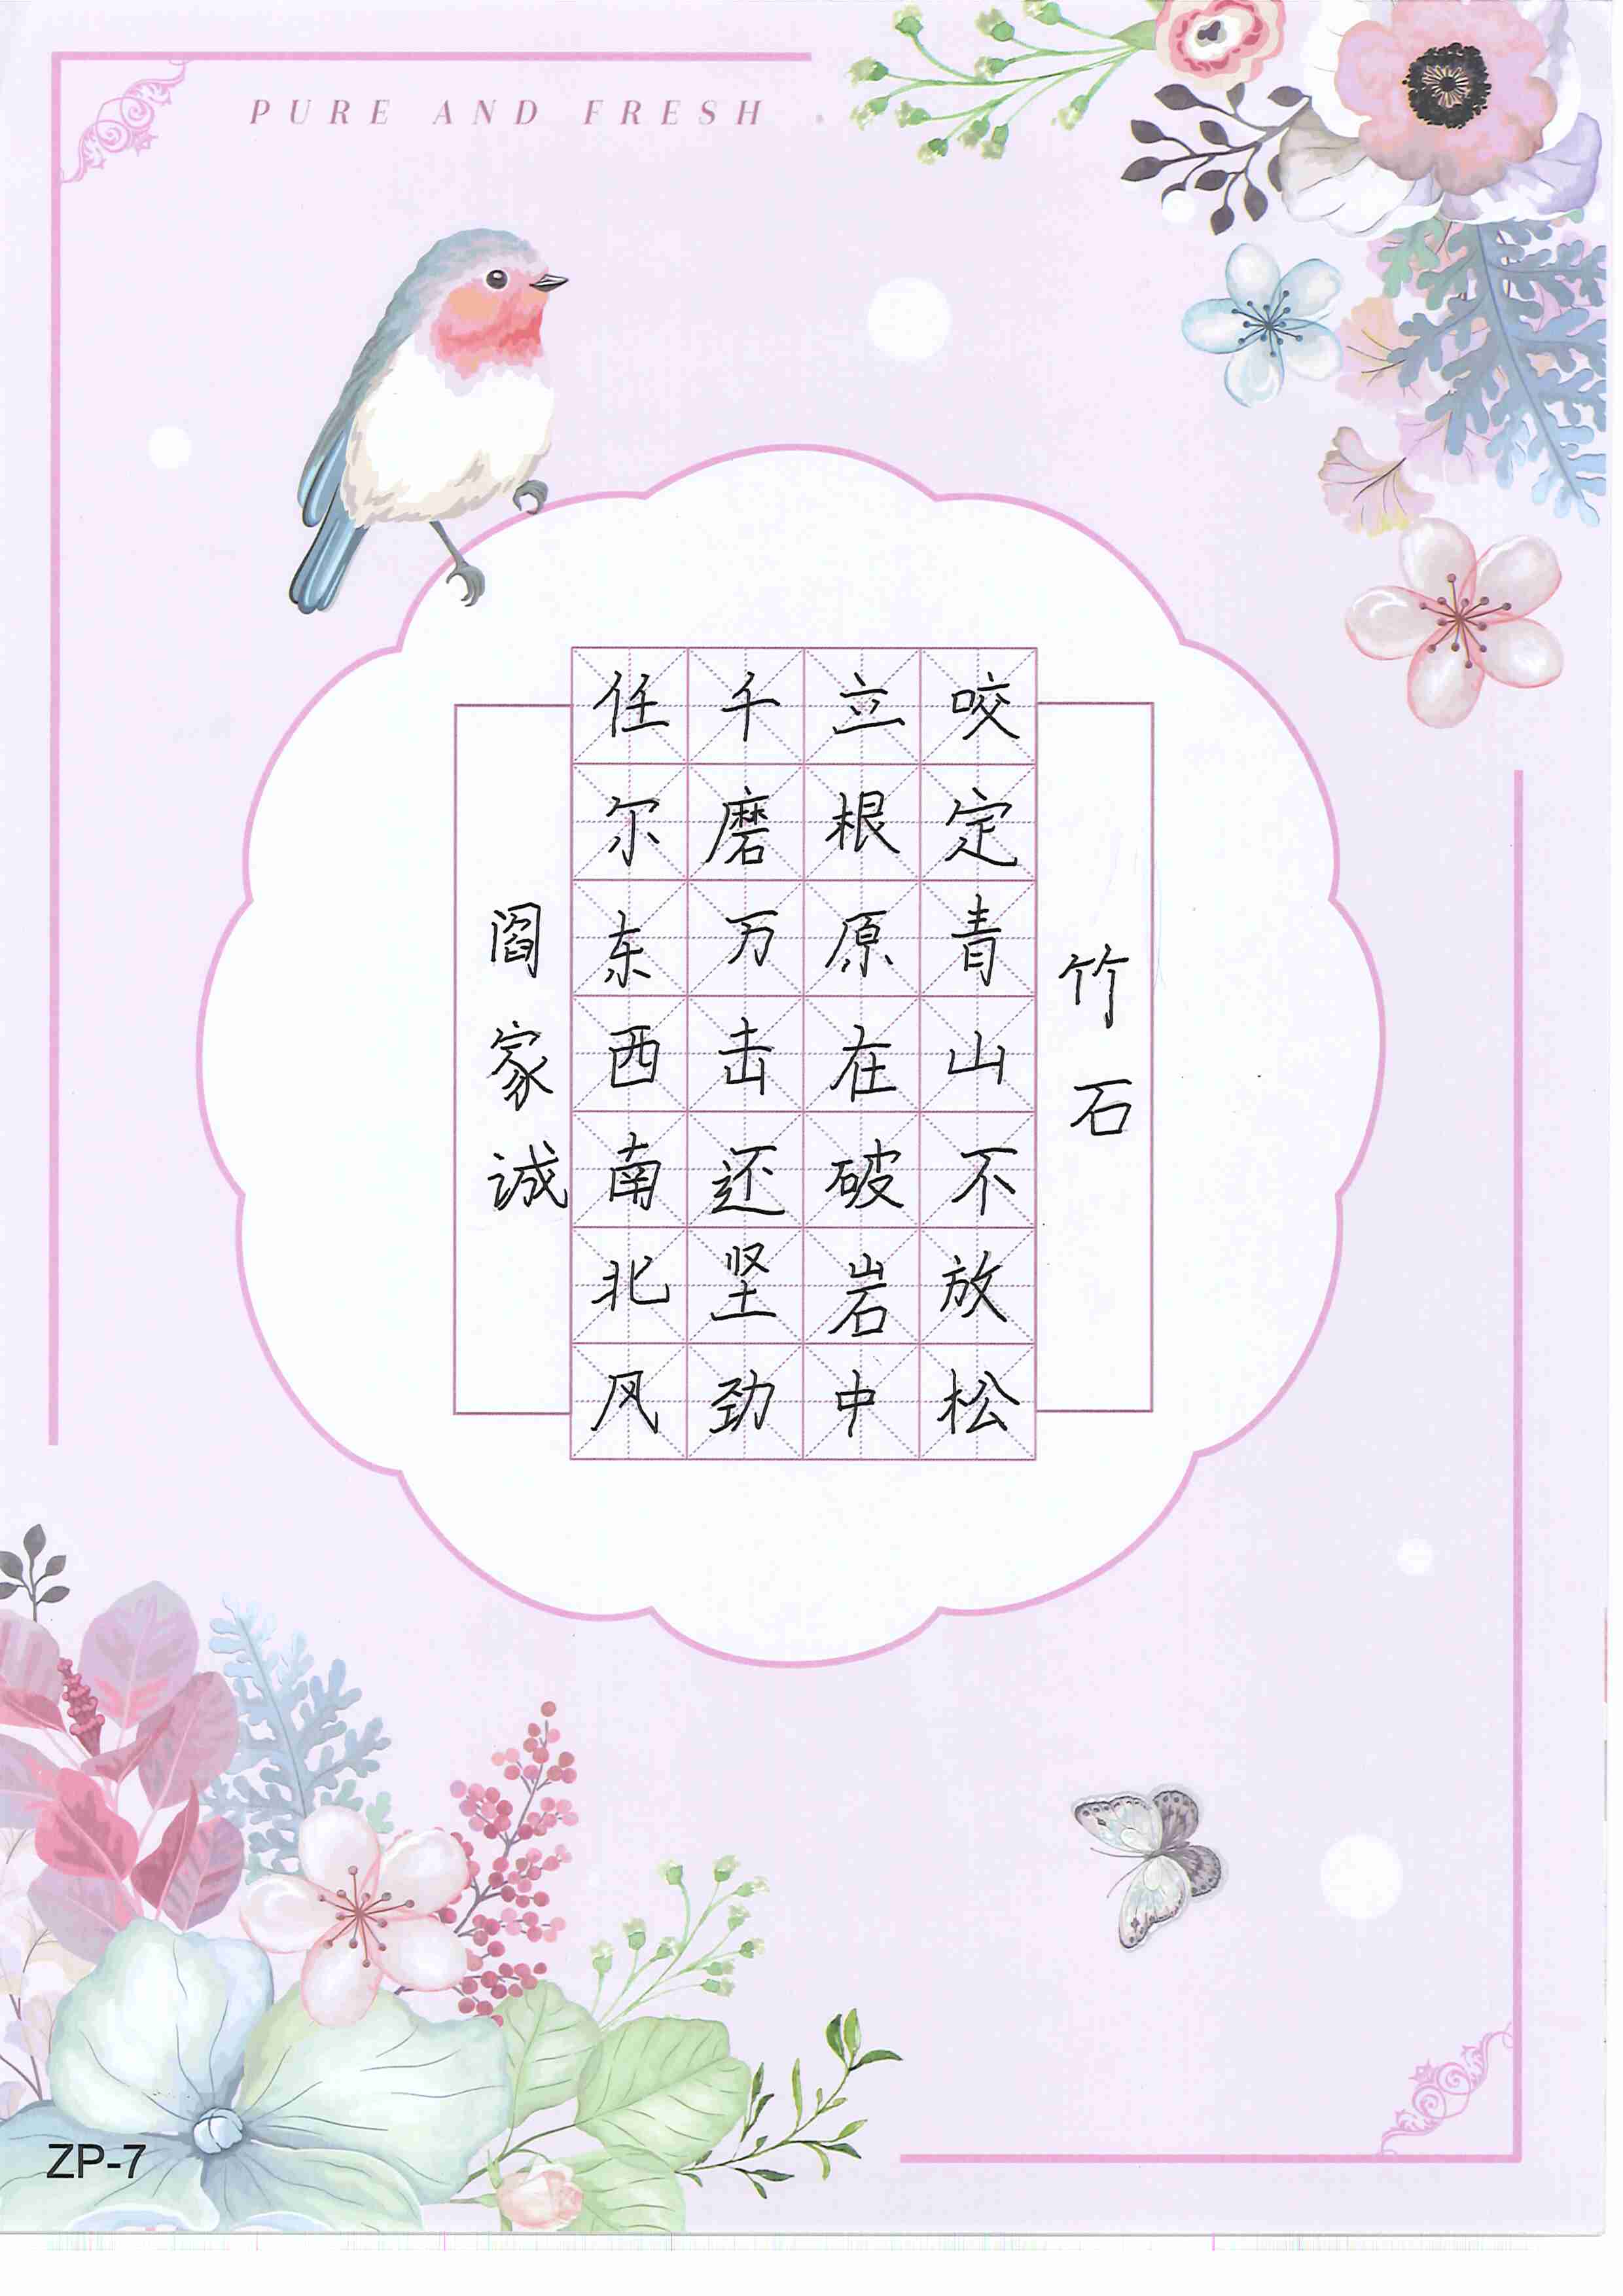 PURE AND FRESH
竹石
咬定青山不放松
立根原在破岩中
千磨万击还坚劲
任尔东西南北风
阎家诚
ZP-7